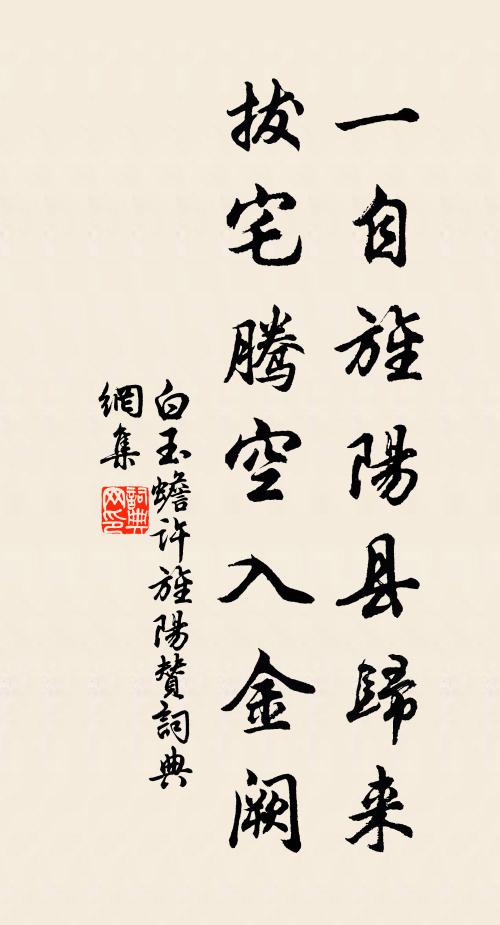 一自旌陽县歸来
拔宅腾空入金阙
白玉蟾许旌陽赞詞典
網集
詞典网印